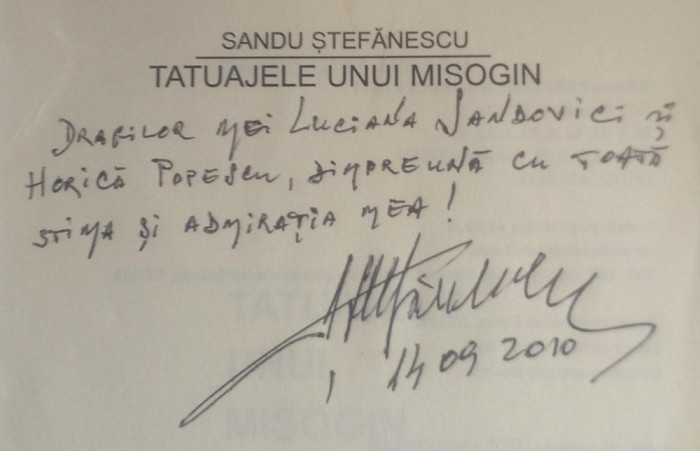 SANDU ȘTEFĂNESCU
TATUAJELE UNUI MISOGIN
DRAGILOR MEI LUCIANA SANDOVICI și
HORICĂ POPESCU, dimpreună cu TOATĂ
STIMA și ADMIRAȚIA MEA!
14 09 2010
TATU
UNUI
MISOGIN